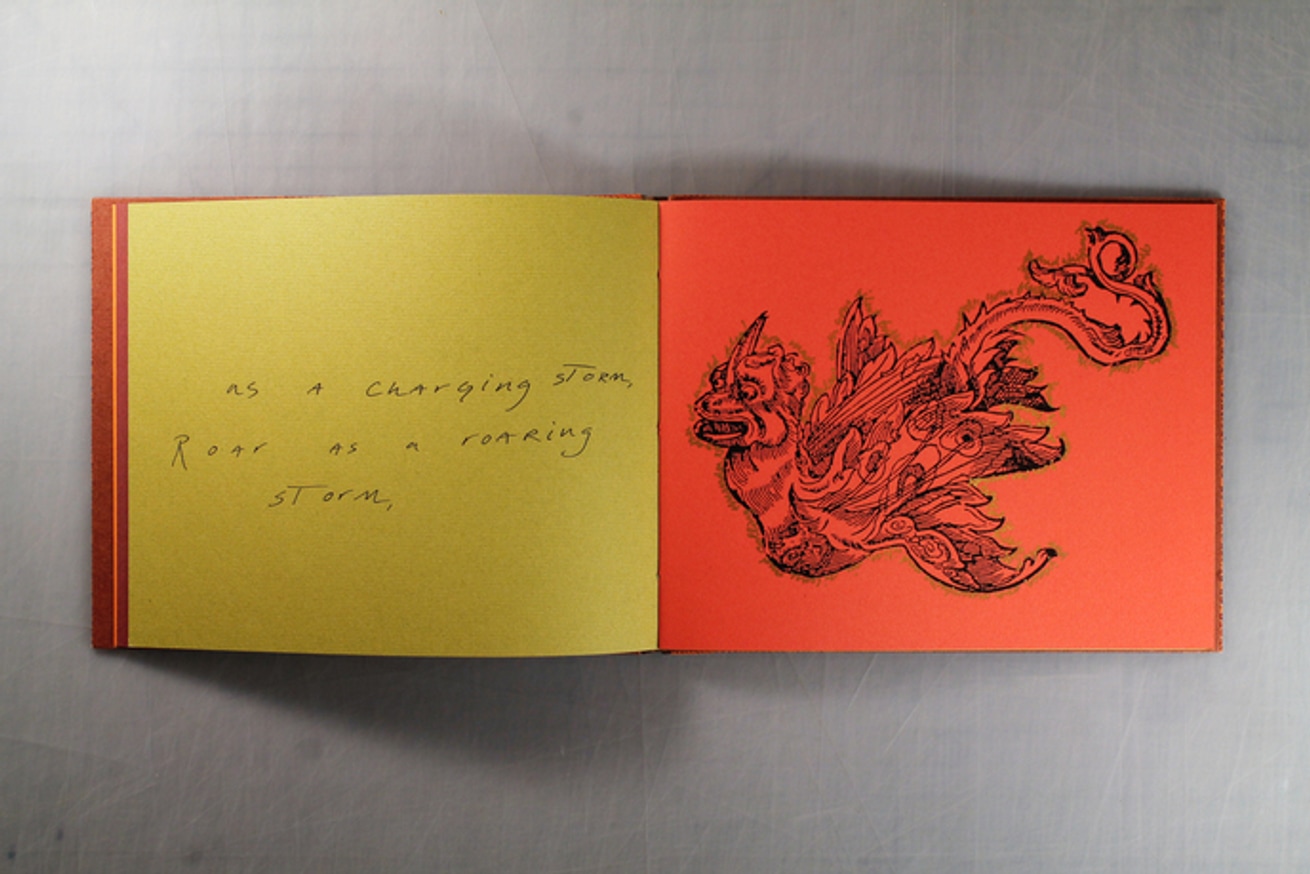 as A charging storm,
Roar as a roaring
storm,